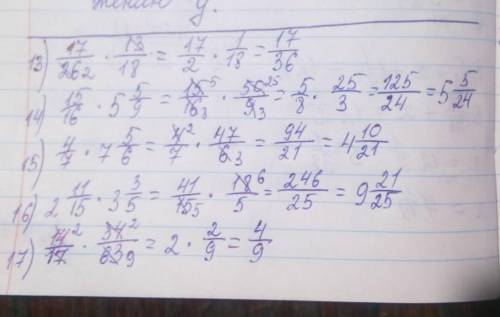 жению у.
13) 17/262 · 13/18 = 17/2 · 1/18 = 17/36
14) 15/16 · 5 5/9 = 15⁵/16₃ · 50²⁵/9₃ = 5/8 · 25/3 = 125/24 = 5 5/24
15) 4/7 · 7 5/6 = 4²/7 · 47/6₃ = 94/21 = 4 10/21
16) 2 11/15 · 3 3/5 = 41/15₅ · 18⁶/5 = 246/25 = 9 21/25
17) 14²/17 · 34²/63₉ = 2 · 2/9 = 4/9